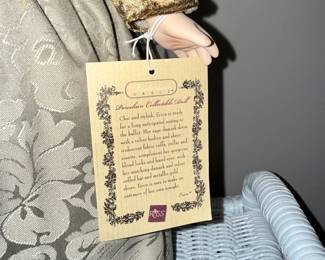 Porcelain Collectible Doll
Chic and stylish, Erica is ready
for a long anticipated outing to
the ballet. Her sage damask dress
with a velvet bodice and sheer
iridescent fabric cuffs, collar and
rosette, compliment her gorgeous
blond locks and hazel eyes, with
her matching damask and velvet
tulled hat and metallic gold
shoes, Erica is sure to make an
entrance of her own tonight.
ROSS